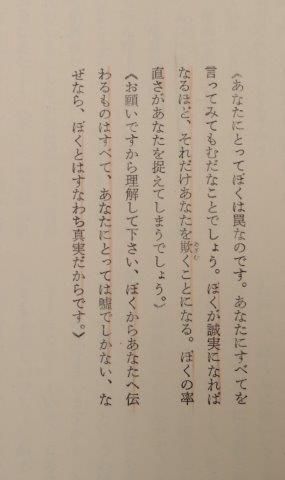 《あなたにとってぼくは罠なのです。あなたにすべてを
言ってみてもむだなことでしょう。ぼくが誠実になれば
なるほど、それだけあなたを欺くことになる。ぼくの率
直さがあなたを捉えてしまうでしょう。》
《お願いですから理解して下さい、ぼくからあなたへ伝
わるものはすべて、あなたにとっては嘘でしかない、な
ぜなら、ぼくとはすなわち真実だからです。》